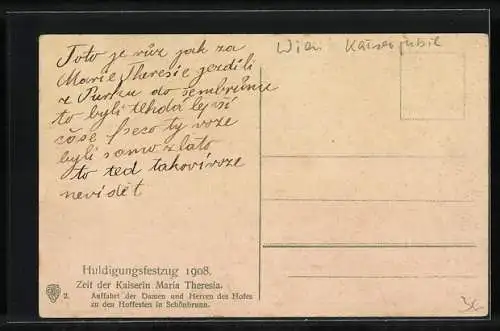 Toto je vůz jak za
Marie Theresie jezdili
z Purku do Šembrůnu
to byli tehdá lepší
čase přeco ty voze
byli samo zlato
to ted takoví voze
nevidět
Wien Kaiserjubil
Huldigungsfestzug 1908.
Zeit der Kaiserin Maria Theresia.
2. Auffahrt der Damen und Herren des Hofes
zu den Hoffesten in Schönbrunn.